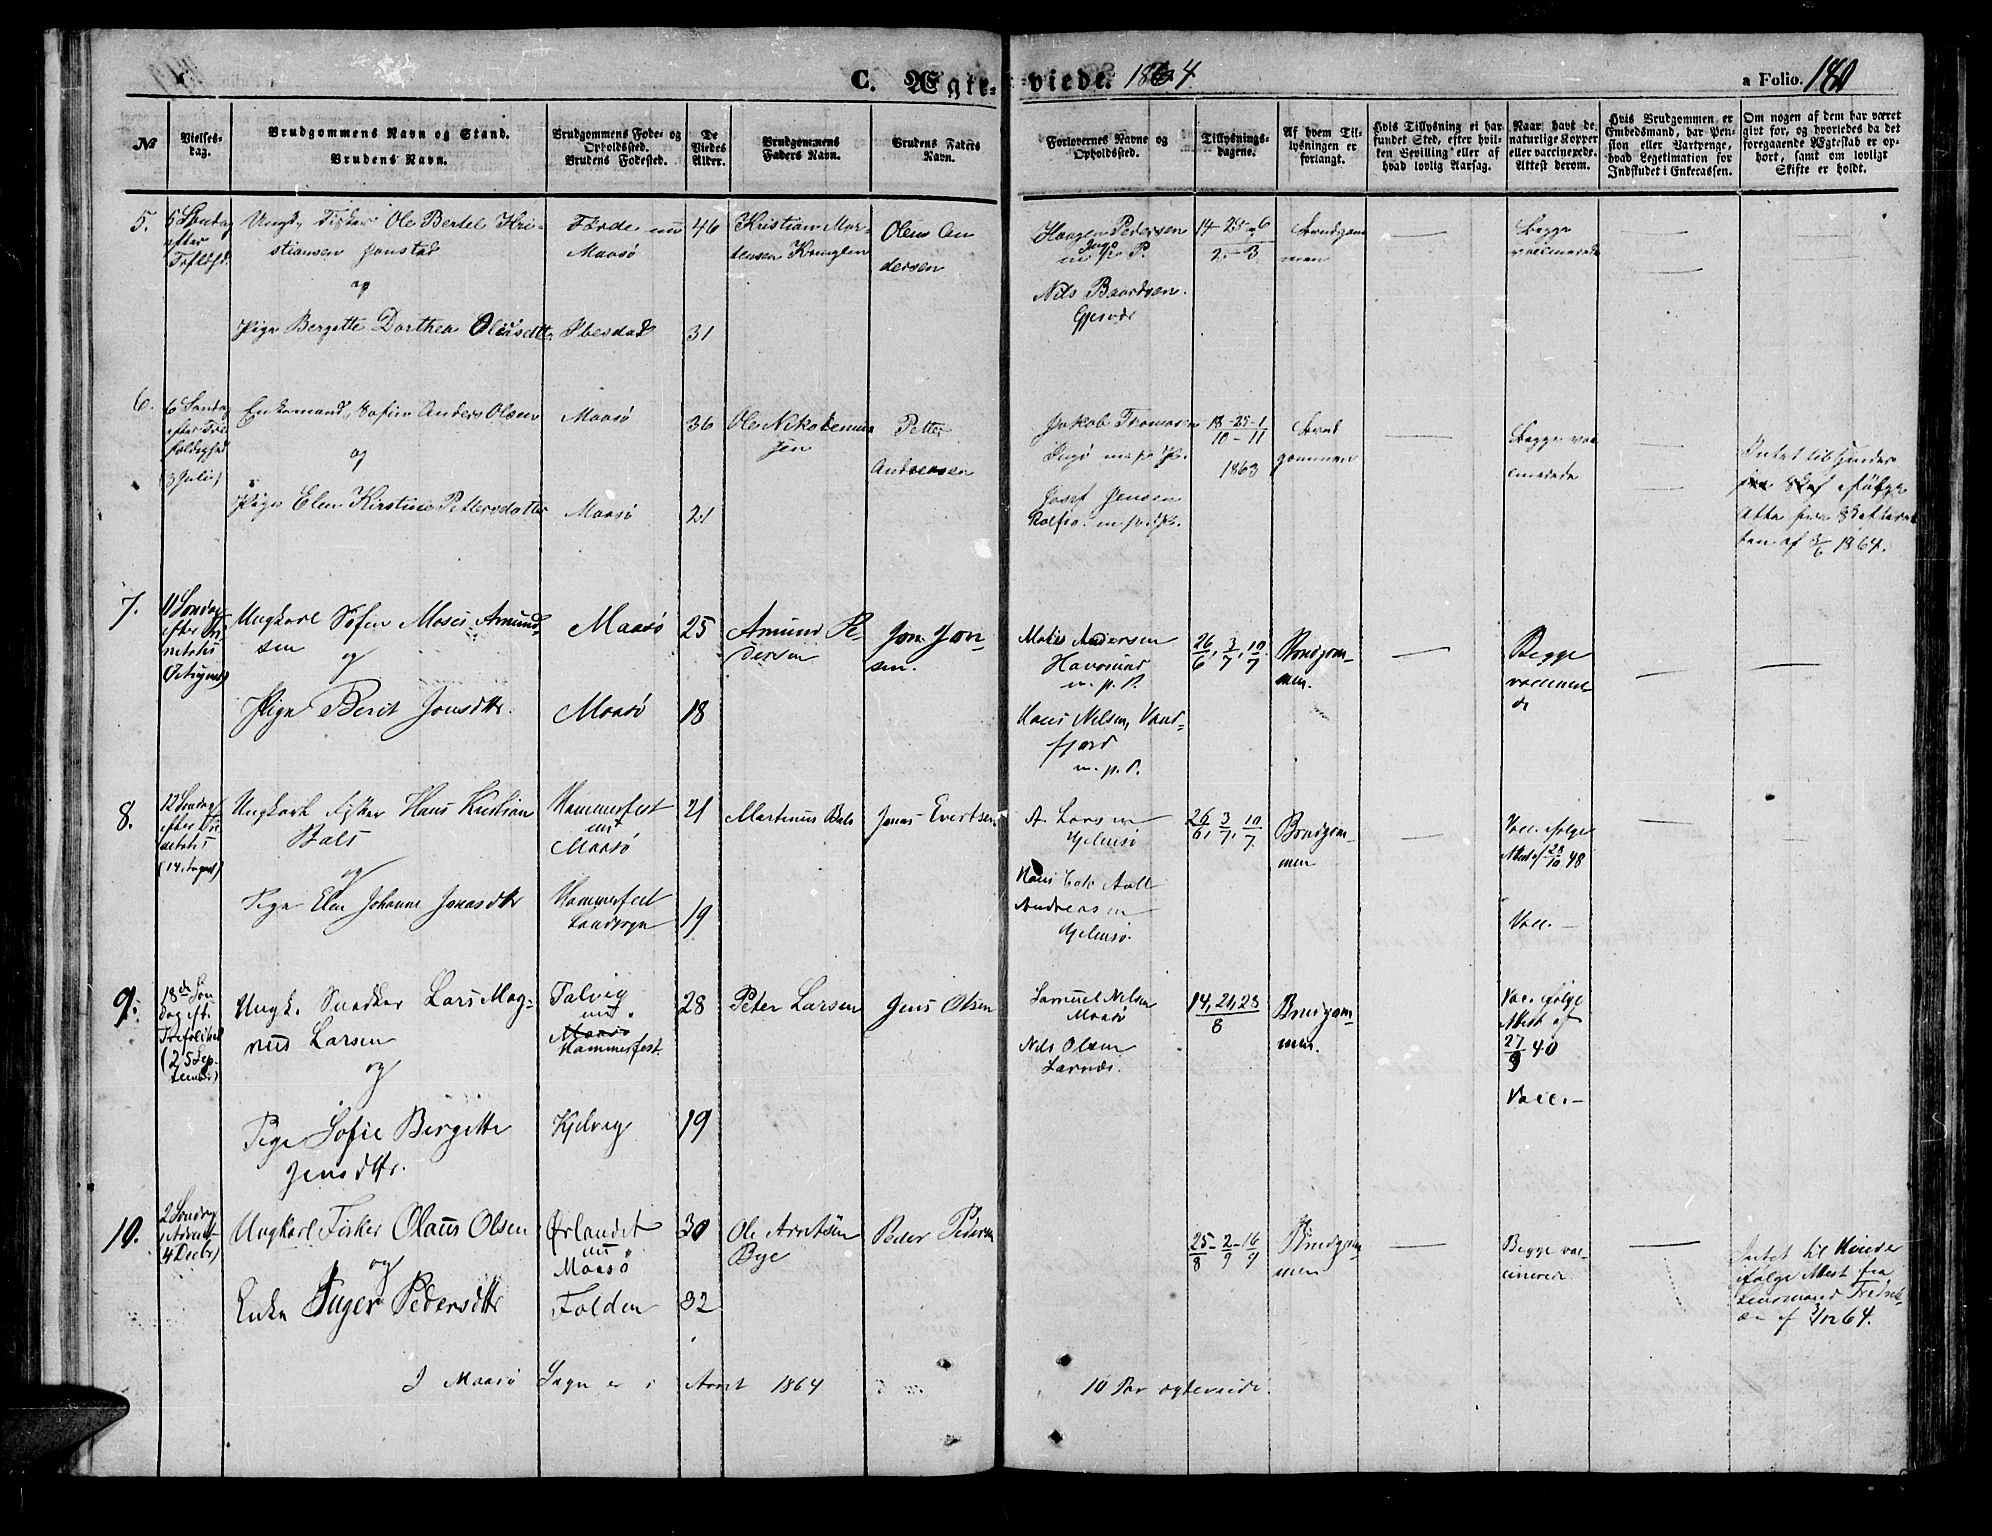 C. Ægte-viede. 1864
a Folio. 180
No
Vielses-dag.
Brudgommens Navn og Stand.
Brudens Navn.
Brudgommens Føde- og Opholdssted.
Brudens Fødested.
De Viedes Alder.
Brudgommens Faders Navn.
Brudens Faders Navn.
Forlovernes Navne og Opholdssted.
Tillysnings-dagene.
Af hvem Tillysningen er forlangt.
Hvis Tillysning ei har fundet Sted, efter hvilken Bevilling eller af hvad lovlig Aarsag.
Naar havt de naturlige Kopper eller vaccinerede. Attest derom.
Hvis Brudgommen er Embedsmand, har Pension eller Vartpenge, hvad Legetimation for Indskudet i Enkecassen.
Om nogen af dem har været givt for, og hvorledes da det foregaaende Ægteskab er ophørt, samt om lovligt Skifte er holdt.
5.
Ungk. Fisker Ole Bertel Kri-
stiansen
og
Pige Bergitte Dorthea Olausdtr
Maasø
46
31
Kristian Mor-
tensen
Olaus An
dersen
Haagen Pedersen
m. p. P.
Nils Baardsen
Gjesvær
14-25-6
2-3
Brudgom
men
Begge
vaccinerede
6.
6 Søndag
efter Tre
foldighed
(3 Juli)
Enkemand, Søfin Anders Olsen
og
Pige Elen Kirstine Pettersdatter
Maasø
Maasø
36
21
Ole Nikodemus
sen
Petter
Andreasen
Jakob Thomasen
Ingø m. p. P.
Josef Jensen
Rolfsø. m. p. P.
18-25-1
10-11
1863
Brud
gommen
Begge vac
cinerede
Intet til Hinder
1864.
7.
11 Søndag
efter Tri
nitatis
(7 August)
Ungkarl Søfin Moses Amund-
sen
og
Pige Berit Jonsdtr.
Maasø
Maasø
25
18
Amund Pe-
dersen
Jon Jon
sen.
Mates Andersen
Havøsund
m. p. P.
Hans Nilsen, Vand-
fjord
m. p. P.
26/6, 3/7, 10/7
Brudgom-
men.
Begge
vaccinere
de
8.
12 Søndag
efter Tri
nitatis
(14 August)
Ungkarl Fisker Hans Kristian
Bals
og
Pige Elen Johanne Jonasdtr
Hammerfest
nu
Maasø
Hammerfest
Landsogn
21
19
Martinus Bals
Jonas Evertsen
A. Larsen
Hjelmsø
Andreasen
Hjelmsø.
26/6, 3/7, 10/7
Brudgom-
men
Vacc. ifølge
Attest af 28/10 48
Vacc. —
9.
18de Søn
dag eft.
Trefoldhed
(25 Sep-
tember)
Ungk. Snedker Lars Mag-
nus Larsen
og
Pige Sofie Birgitte
Jensdtr.
Talvig
nu
Maasø
Hammerfest.
Kjelvig
28
19
Peter Larsen
Jens Olsen
Samuel Nilsen
Maasø
Nils Olsen
14, 21, 28
8
Brudgom-
men.
Vacc. ifølge
Attest af
27/9 40
Vacc. —
10.
2 Søndag
i Advent
4 Decbr)
Ungkarl Fisker Olaus Olsen
og
Enke Inger Pedersdtr
Ørlandet
nu
Maasø
Folden
30
32
Ole Arntsen
Bye
Peder Pedersen
25/8 - 2/9 - 16/9
Brudgom
men
Begge vac-
cinerede
Intet til Hinder
ifølge Attest fra
Lensmand Fredrik-
sen af 3/12 64.
I Maasø Sogn er i Aaret 1864
10 Par ægteviede.